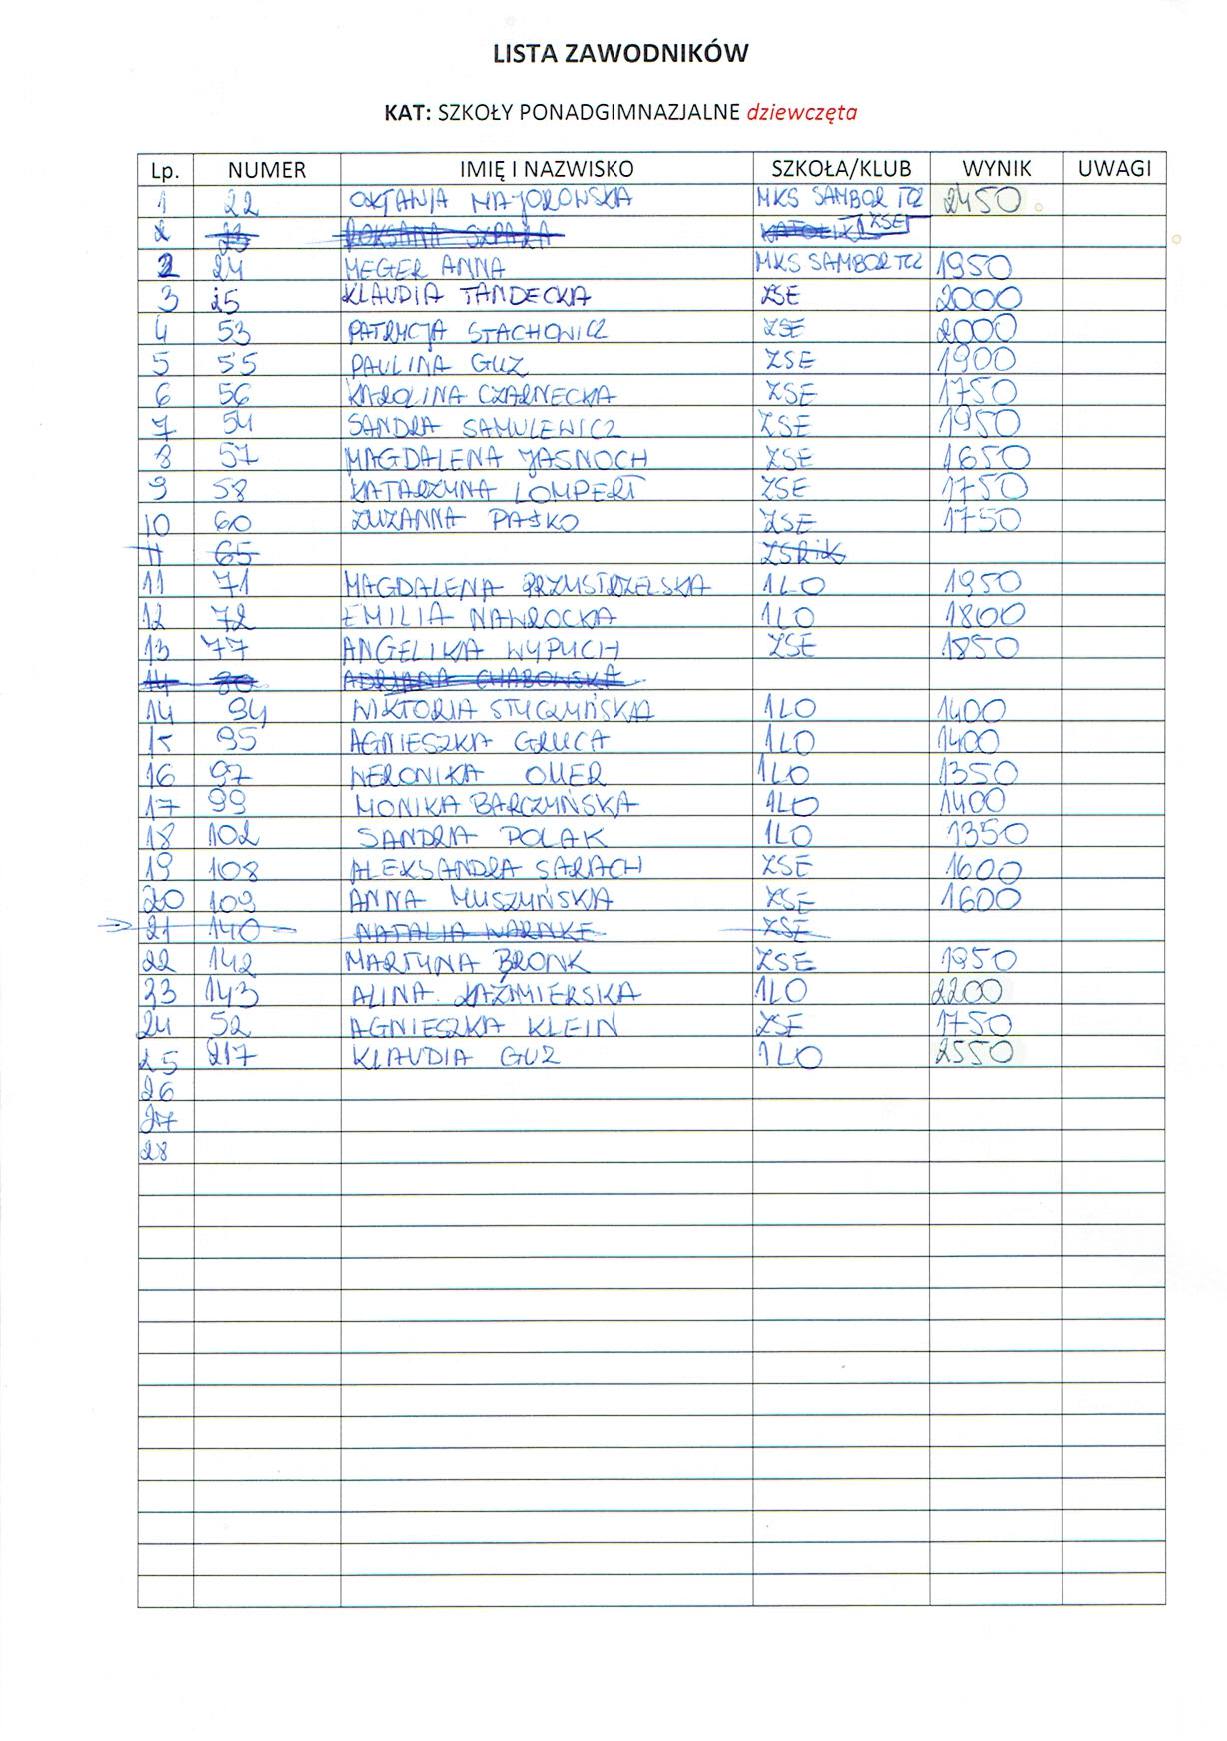 LISTA ZAWODNIKÓW
KAT: SZKOŁY PONADGIMNAZJALNE dziewczęta
Lp. NUMER IMIĘ I NAZWISKO SZKOŁA/KLUB WYNIK UWAGI
1 22 OKTAWIA MAJOROWSKA MKS SAMBOR TCZ 2450
2 23 ROKSANA SZPAŁA ZSE
2 24 MEGER ANNA MKS SAMBOR TCZ 1950
3 25 KLAUDIA TANDECKA ZSE 2000
4 53 PATRYCJA STACHOWICZ ZSE 2000
5 55 PAULINA GUZ ZSE 1900
6 56 KAROLINA CZARNECKA ZSE 1750
7 54 SANDRA SAMULEWICZ ZSE 1950
8 57 MAGDALENA JASNOCH ZSE 1650
9 58 KATARZYNA LOMPERT ZSE 1750
10 60 ZUZANNA PAŚKO ZSE 1750
11 65 ZSRiK
11 71 MAGDALENA PRZYSTRZELSKA 1LO 1950
12 72 EMILIA NAWROCKA 1LO 1800
13 77 ANGELIKA WYPUCH ZSE 1850
14 80 ADRIANA CHABOWSKA
14 94 WIKTORIA STYCZYŃSKA 1LO 1400
15 95 AGNIESZKA GRUCA 1LO 1400
16 97 WERONIKA OLLER 1LO 1350
17 99 MONIKA BARCZYŃSKA 1LO 1400
18 102 SANDRA POLAK 1LO 1350
19 108 ALEKSANDRA SARACH ZSE 1600
20 109 ANNA MUSZYŃSKA ZSE 1600
→ 21 140 NATALIA WARNKE ZSE
22 142 MARTYNA BRONK ZSE 1950
23 143 ALINA KAŹMIERSKA 1LO 2200
24 52 AGNIESZKA KLEIN ZSE 1750
25 217 KLAUDIA GUZ 1LO 2550
26
27
28